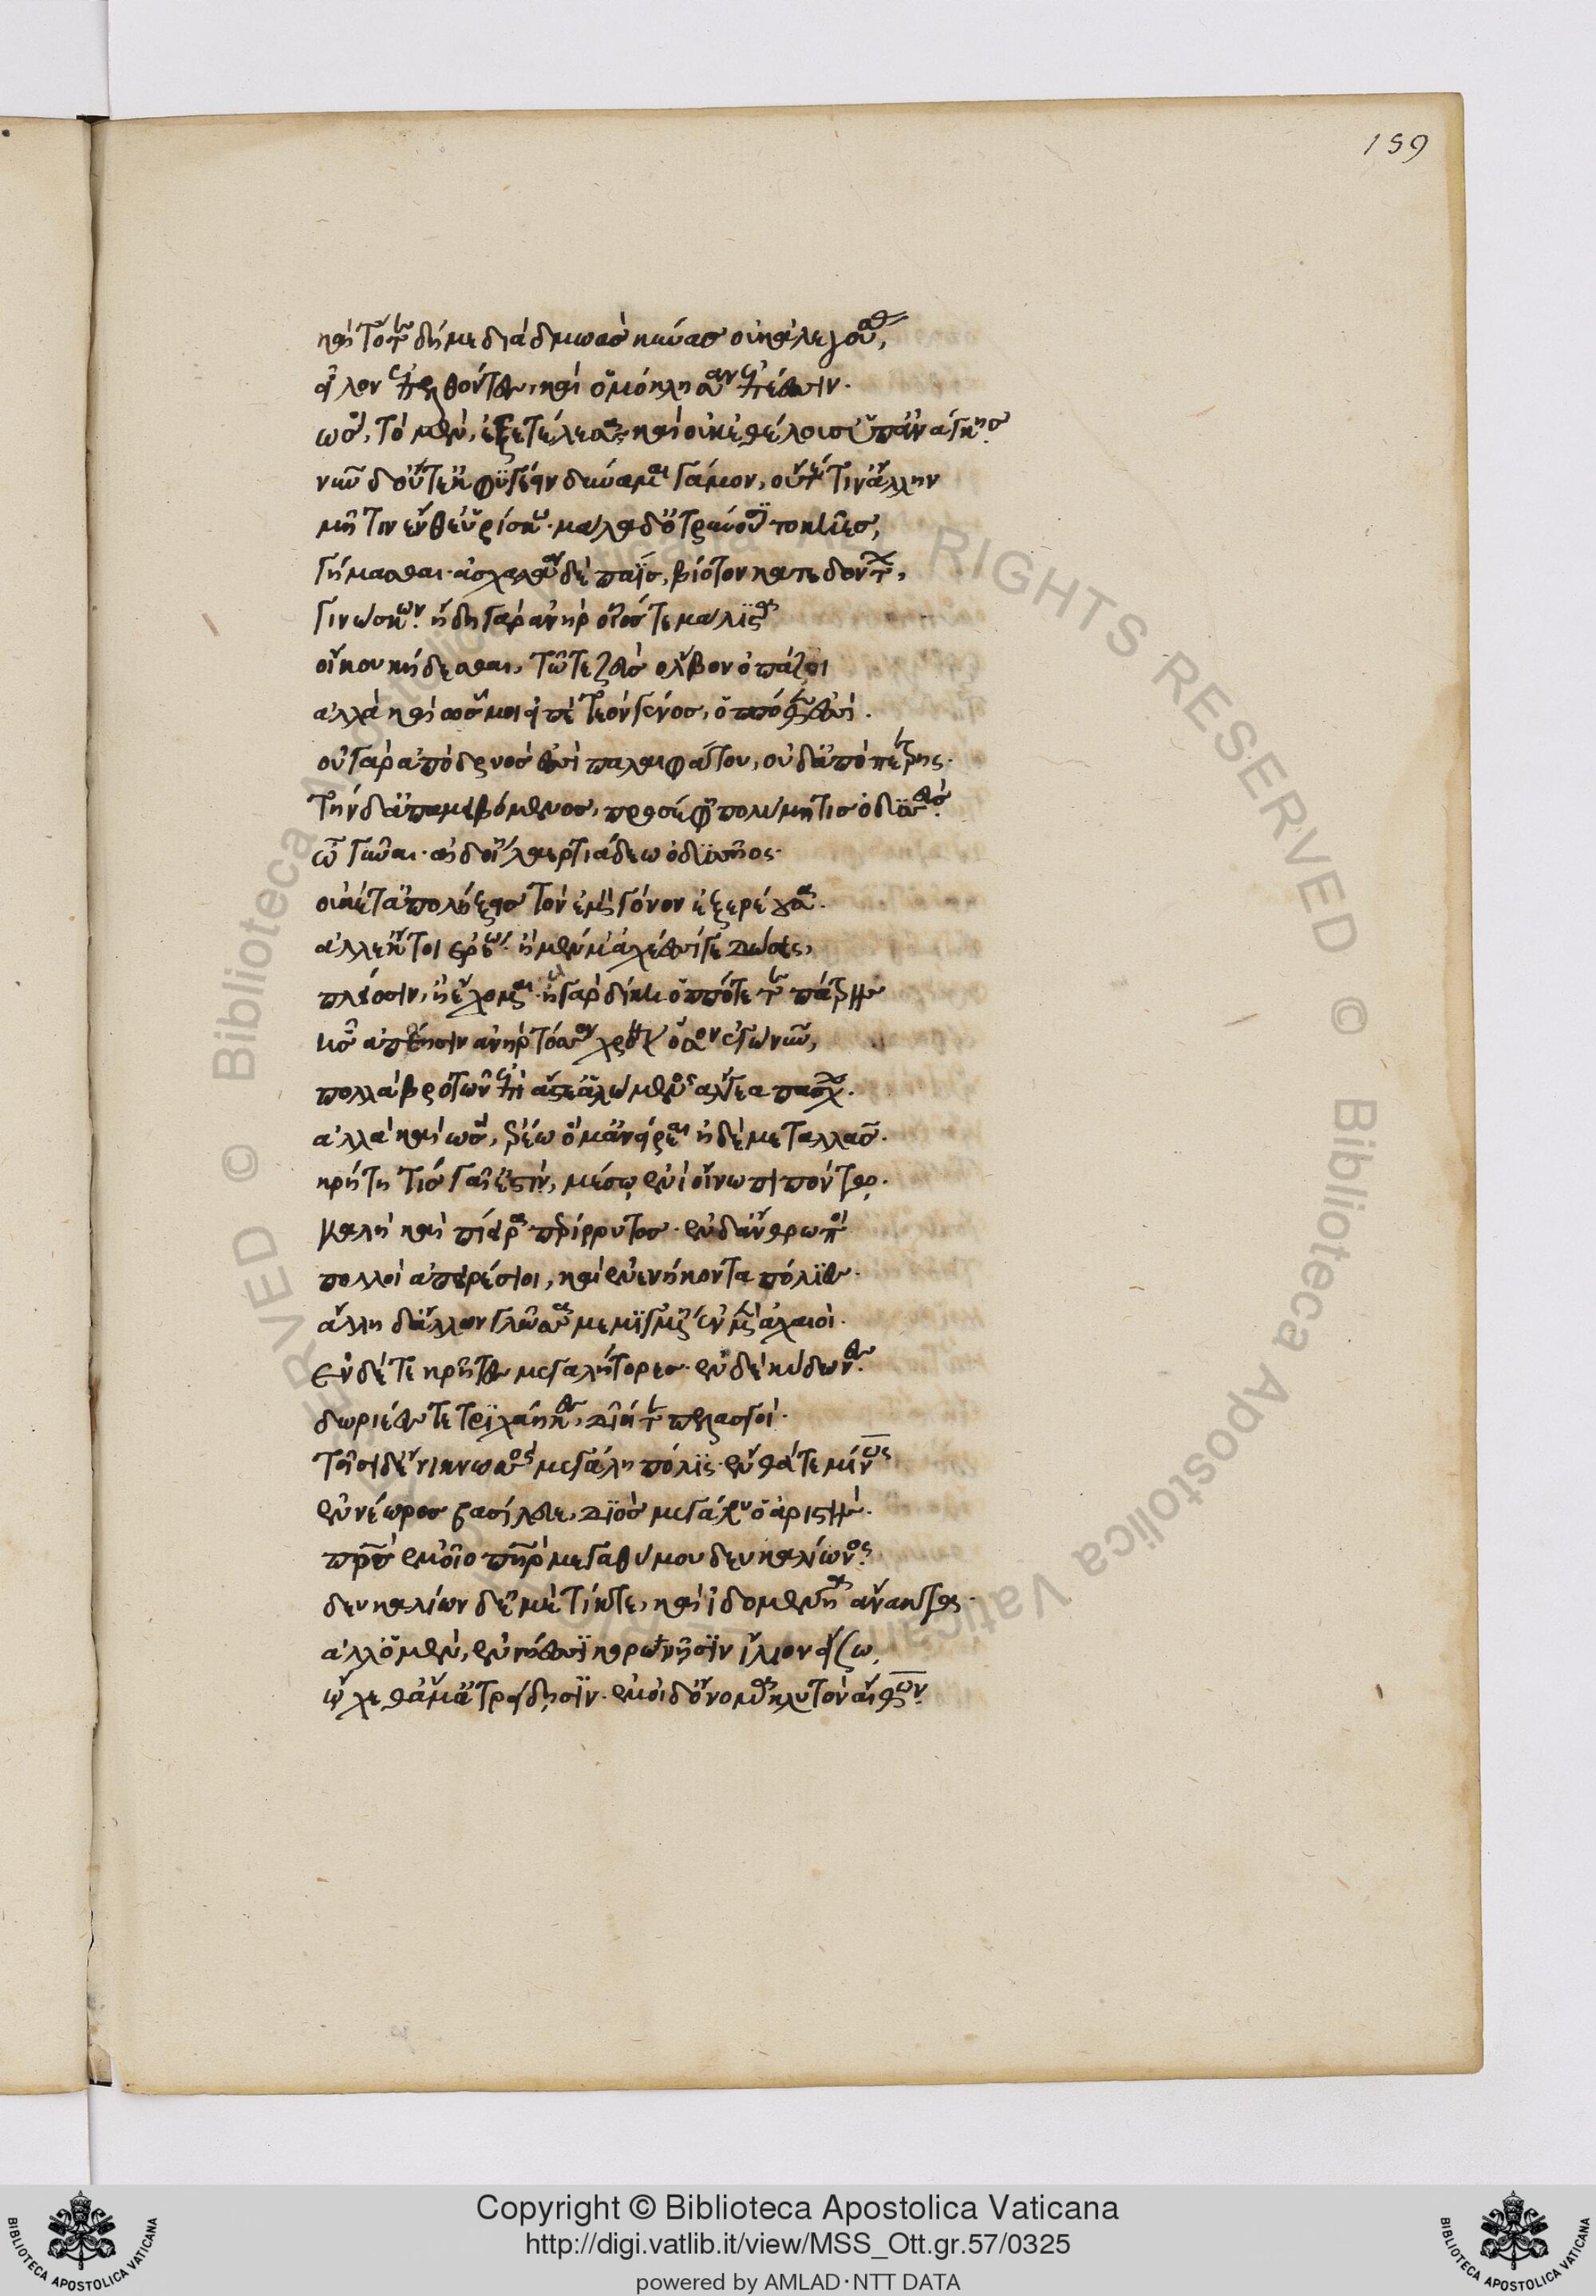 159
καὶ τότε δή με διὰ δμωὰς κύνας οὐκ ἀλεγούσας,
εἷλον ἐπελθόντες, καὶ ὁμόκλησαν ἐπέεσσιν.
ὣς, τὸ μὲν, ἐξετέλεσσα, καὶ οὐκ ἐθέλουσ' ὑπ' ἀνάγκης.
νῦν δ' οὔτ' ἐκφυγέειν δύναμαι γάμον, οὔτέ τιν' ἄλλην
μῆτιν ἔνθ' εὑρίσκω. μάλα δ' ὀτρύνουσι τοκῆες,
γήμασθαι. ἀσχαλάα δὲ πάϊς, βίοτον κατεδόντων,
γινώσκων. ἤδη γὰρ ἀνὴρ οἷός τε μάλιστα
οἴκου κήδεσθαι, τῷ τε ζεὺς ὄλβον ὀπάζει
ἀλλὰ καὶ ὥς μοι εἰπὲ τεὸν γένος, ὁππόθεν ἐσσί.
οὐ γὰρ ἀπὸ δρυός ἐσσι παλαιφάτου, οὐδ' ἀπὸ πέτρης.
τὴν δ' ἀπαμειβόμενος, προσέφη πολύμητις ὀδυσσεύς.
ὦ γύναι αἰδοίη λαερτιάδεω ὀδυσῆος.
οὐκέτ' ἀπολήξεις τὸν ἐμὸν γόνον ἐξερέουσα.
ἀλλ' ἔκ τοι ἐρέω. ἦ μέν μ' ἀχέεσσί γε δώσεις,
πλείοσιν, ἢ ἔχομαι. ἡ γὰρ δίκη ὁππότε τε πάτρης
ἧς ἀπέῃσιν ἀνὴρ τόσσον χρόνον ὅσσον ἐγὼ νῦν,
πολλὰ βροτῶν ἐπὶ ἄστε' ἀλώμενος ἄλγεα πάσχων.
ἀλλὰ καὶ ὧς, ἐρέω ὅ μ' ἀνείρεαι ἠδὲ μεταλλᾷς.
κρήτη τὶς γαῖ' ἐστὶν, μέσῳ ἐνὶ οἴνοπι πόντῳ.
καλὴ καὶ πίειρα περίρρυτος. ἐν δ' ἄνθρωποι
πολλοὶ ἀπειρέσιοι, καὶ ἐννήκοντα πόληες.
ἄλλη δ' ἄλλων γλῶσσα μεμιγμένη. ἐν μὲν ἀχαιοὶ.
ἐν δ' ἐτεόκρητες μεγαλήτορες. ἐν δὲ κύδωνες.
δωριέες τε τριχάϊκες, δῖοί τε πελασγοί.
τοῖσι δ' ἐνὶ κνωσσὸς μεγάλη πόλις. ἔνθα τε μίνως
ἐννέωρος βασίλευε, διὸς μεγάλου ὀαριστής.
πατρὸς ἐμοῖο πατὴρ μεγαθύμου δευκαλίωνος.
δευκαλίων δ' ἐμὲ τίκτε, καὶ ἰδομενῆα ἄνακτα.
ἀλλ' ὁ μὲν, ἐν νήεσσι κορωνίσιν ἴλιον εἴσω,
ᾤχεθ' ἅμ' ἀτρείδῃσιν. ἐμοὶ δ' ὄνομα κλυτὸν αἴθων.
Copyright © Biblioteca Apostolica Vaticana
http://digi.vatlib.it/view/MSS_Ott.gr.57/0325
powered by AMLAD·NTT DATA